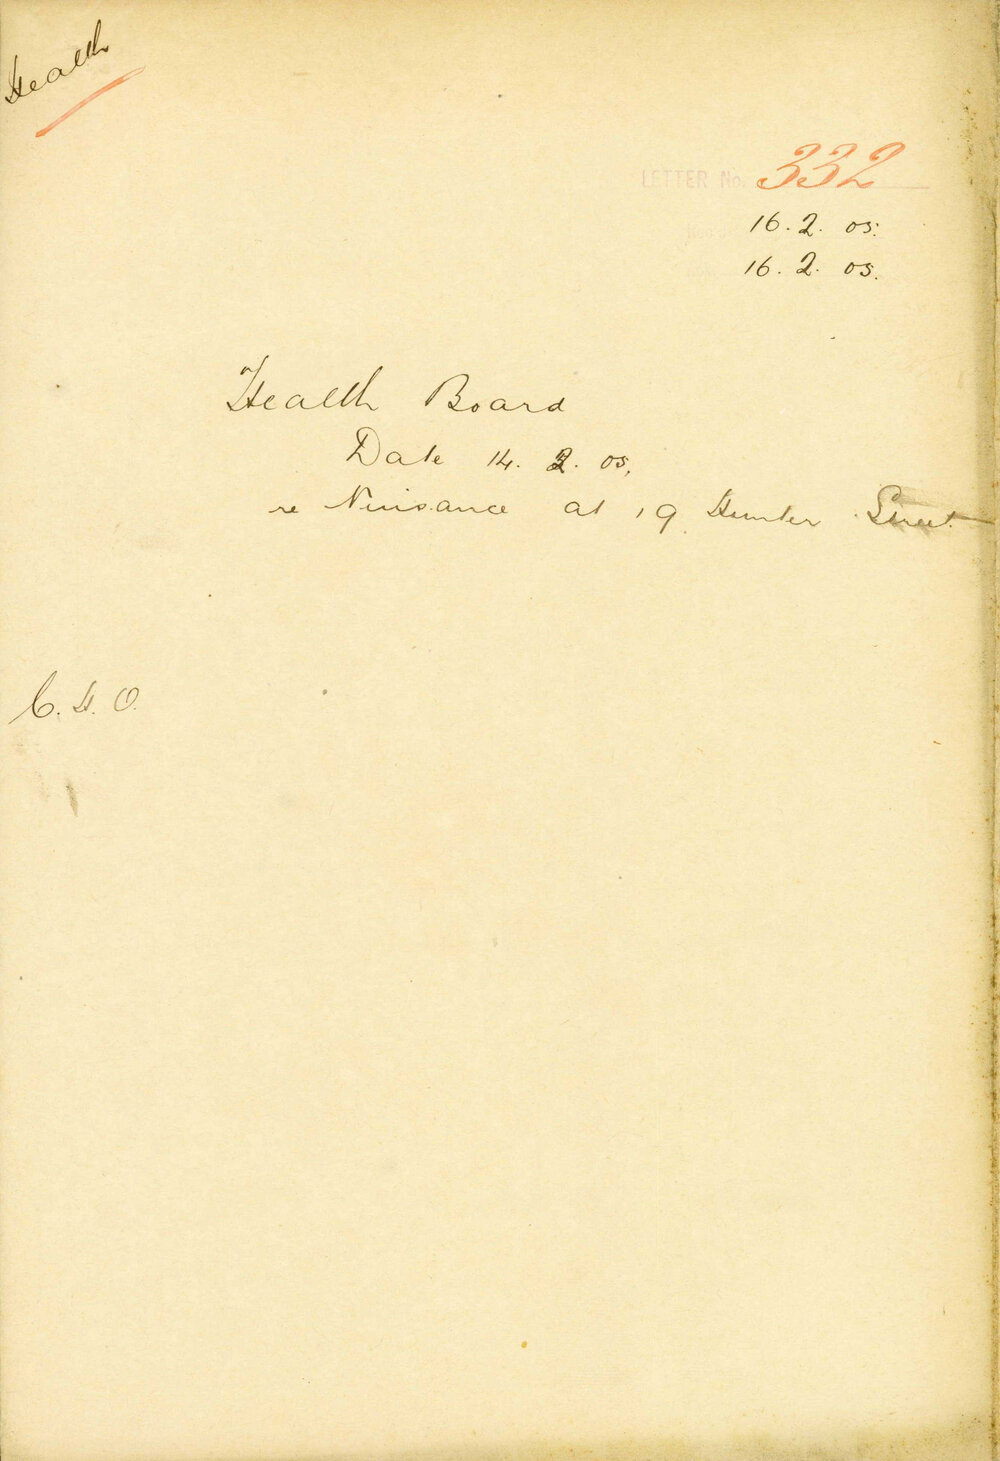 Health
LETTER No. 332
16. 2. 05.
16. 2. 05.
Health Board
Date 14. 2. 05.
re Nuisance at 19 Hunter Street
C. H. O.